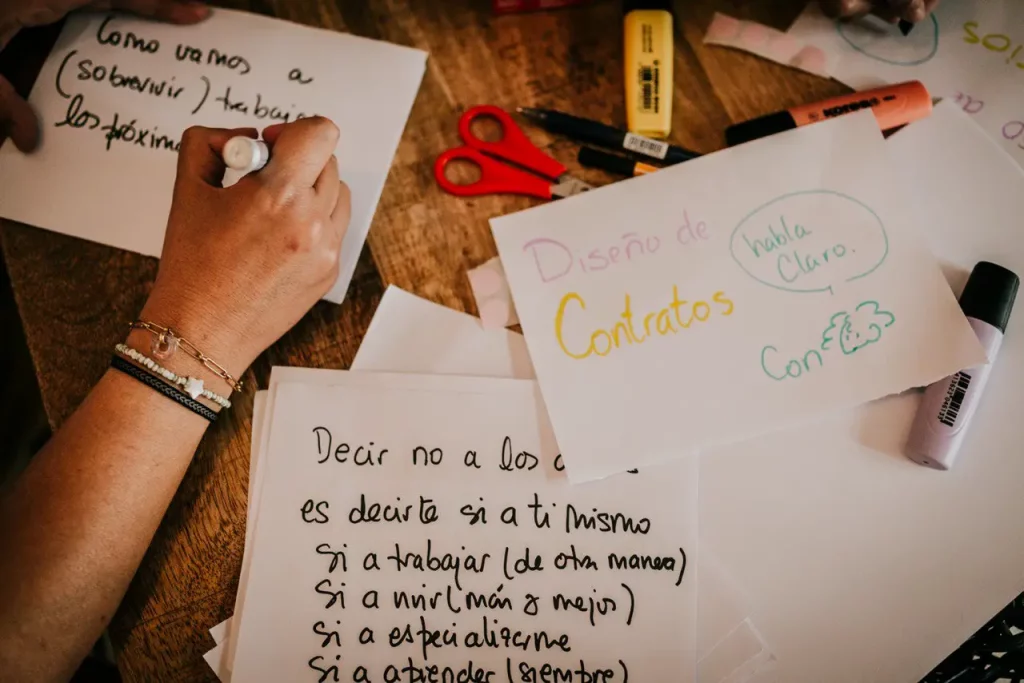 Como vamos a
(sobrevivir) trabaja
los próxim
Diseño de
Contratos
habla
Claro.
Con
Decir no a los
es decirte si a ti mismo
si a trabajar (de otra manera)
Si a vivir (más y mejor)
Si a especializarme
Si a aprender (siempre)